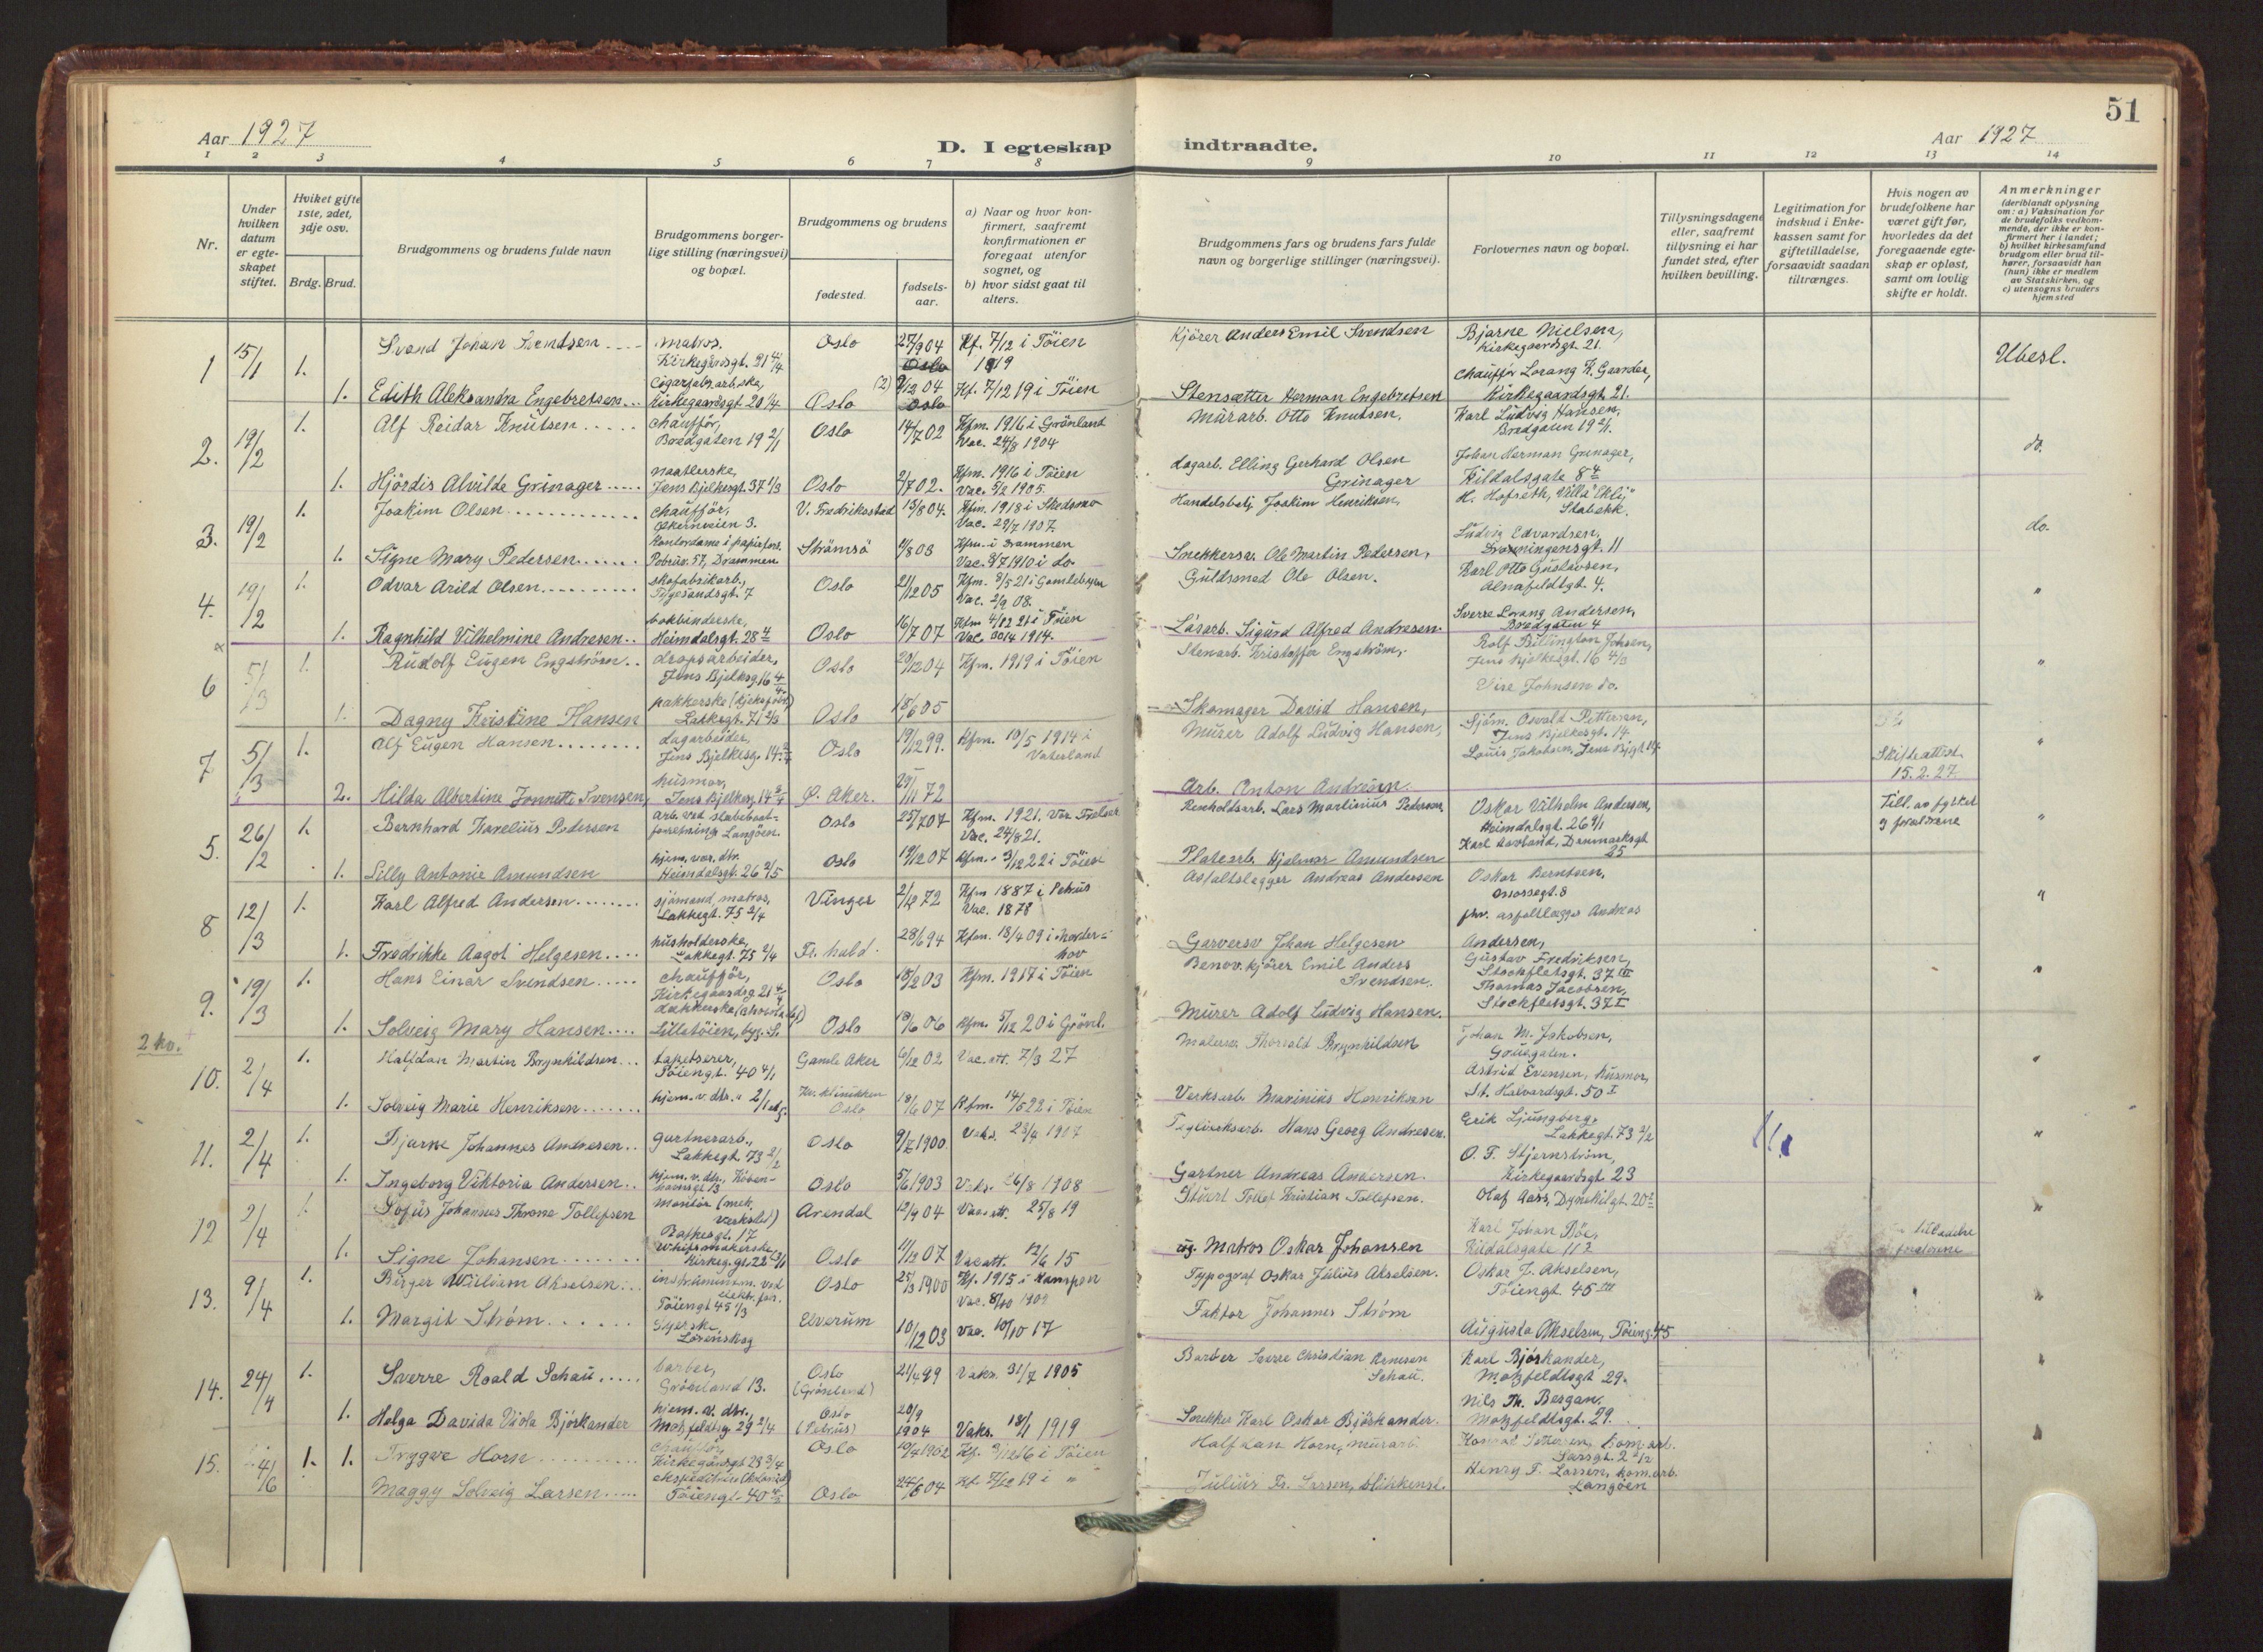 51
Aar 1927
D. I egteskap indtraadte.
Aar 1927
1 2 3 4 5 6 7 8 9 10 11 12 13 14
Nr.
Under hvilken datum er egteskapet stiftet.
Hviket gifte 1ste, 2det, 3dje osv.
Brdg. Brud.
Brudgommens og brudens fulde navn
Brudgommens borgerlige stilling (næringsvei) og bopæl.
Brudgommens og brudens
fødested.
fødselsaar.
a) Naar og hvor konfirmert, saafremt konfirmationen er foregaat utenfor sognet, og
b) hvor sidst gaat til alters.
Brudgommens fars og brudens fars fulde navn og borgerlige stillinger (næringsvei).
Forlovernes navn og bopæl.
Tillysningsdagene eller, saafremt tillysning ei har fundet sted, efter hvilken bevilling.
Legitimation for indskud i Enkekassen samt for giftetilladelse, forsaavidt saadan tiltrænges.
Hvis nogen av brudefolkene har været gift før, hvorledes da det foregaaende egteskap er opløst, samt om lovlig skifte er holdt.
Anmerkninger
(deriblandt oplysning om: a) Vaksination for de brudefolks vedkommende, der ikke er konfirmert her i landet;
b) hvilket kirkesamfund brudgom eller brud tilhører, forsaavidt han (hun) ikke er medlem av Statskirken, og
c) utensogns bruders hjemsted
1 15/1 1. Svend Johan Svendsen matros, Kirkegårdsgt. 21 Oslo 27/9 04 Kf. 7/12 i Töien 1919 Kjörer Anders Emil Svendsen Bjarne Nielsen, Kirkegaardsgt. 21. Ubesl.
1. Edith Aleksandra Engebretsen Kirkegaardsgt. 20 Oslo 04 Kf. 7/12 19 i Töien Stensætter Herman Engebretsen Chaufför Lorang K. Gaarder, Kirkegaardsgt 21.
2. 19/2 1. Alf Reidar Knutsen chauffør, Bredgaten 19 2/1 Oslo 14/7 02 Kfm. 1916 i Grönland Vac. 24/8 1904 Murarb. Otto Knutsen. Karl Ludvig Hansen, Bredgaten 19 2/1. do.
1. Hjördis Alvilde Grinager Jens Bjelkesgt. 37 1/3 Oslo 2/7 02. Kfm. 1916 i Töien Vac. 5/2 1905. dagarb. Elling Gerhard Olsen Grinager Johan Herman Grinager, Kildalsgate 8
3. 19/2 1. Joakim Olsen chauffør, Økernveien 3. V. Fredrikstad 15/8 04. Kfm. 1918 i Skedsmo Vac. 29/7 1907. Handelsbetj. Joakim Henriksen, H. Hofseth, Villa "Eklij" Stabekk. do.
1. Signe Mary Pedersen Kontordame i papirforr. 57, Drammen Strömsö 08 Kfm. i Drammen Vac. 8/7 1910 i do. Snekkersv. Ole Martin Pedersen, Ludvig Edvardsen, 11
4. 19/2 1. Odvar Arild Olsen skofabrikarb., Oslo 21/12 05 Kfm. 8/5 21 i Gamlebyen Vac. 2/9 08. Guldsmed Ole Olsen. Karl Otto Gustavsen, Alnafeldtgt. 4. "
1. Ragnhild Vilhelmine Andresen bokbinderske, Heimdalsgt. 28 Oslo 16/7 07 Kfm 4/12 21 i Töien Vac. 1914. Sigurd Alfred Andresen. Sverre Lorang Andersen, Bredgaten 4
6 5/3 1. Rudolf Eugen Engström dropsarbeider, Jens Bjelkesg. 16 Oslo 20/12 04 Kfm. 1919 i Töien Stenarb. Kristoffer Engström, Rolf Johsen, Jens Bjelkesgt. 16 4/3 "
1. Dagny Kristine Hansen pakkerske Lakkegt. 71 2/3 Oslo 18/6 05 Skomager David Hansen, Johnsen do.
7 5/3 1. Alf Eugen Hansen dagarbeider, Jens Bjelkesg. 14 Oslo 19/12 99. Kfm. 10/5 1914 i Vaterland Murer Adolf Ludvig Hansen, Sjöm. Osvald Pettersen, Jens Bjelkesgt. 14 "
2. Hilda Albertine Jonnette Svensen, husmor, Jens Bjelkesg. 14 Ø. Aker. 72 Arb. Anton Andresen. Louis Jakobsen, Jens Bjgt 14. Skifteattest 15.2.27
5. 26/2 1. Bernhard Karelius Pedersen arb. ved Langöen. Oslo 25/7 07 Kfm. 1921. Vår Frelser Vac. 24/8 21. Renholdsarb. Lars Martinius Pedersen Oskar Vilhelm Andersen, Heimdalsgt. 26 Till. av fylket "
1. Lilly Antonie Amundsen hjem. vær. dtr. Heimdalsgt. 26 2/5 Oslo 19/12 07 Kfm. 3/12 22 i Töien Platearb. Hjalmar Amundsen Karl Danmarksgt 25
8 12/3 1. Karl Alfred Andersen sjömand, matros, Lakkegt. 75 2/4 Vinger 72 Kfm 1887 i Petrus Vac. 1878 Asfaltslægger Andreas Andersen Oskar Berntsen, "
1. Fredrikke Aagot Helgesen husholderske, Lakkegt. 75 2/4 Fr. hald. 28/6 94 Kfm. 18/4 09 i Norderhov Garversv Johan Helgesen asfaltlægger Andreas Andersen,
9. 19/3 1. Hans Einar Svendsen chauffør, Kirkegaardsg. 21 Oslo 18/2 03 Kfm. 1917 i Töien Renov. kjörer Emil Anders Svendsen. Gustav Fredriksen, Stockfletsgt. 37 III "
1. Solveig Mary Hansen Lilletöien, Oslo 06 Kfm. 5/12 20 i Grönl. Murer Adolf Ludvig Hansen. Thomas Jacobsen, Stockfletsgt. 37 I
2 ko.
10. 2/4 1. Halfdan Martin Brynhildsen tapetserer, Töiengt. 40 4/1 Gamle Aker 6/12 02 Vac. att. 7/3 27 Thorvald Brynhildsen Johan M. Jakobsen, "
1. Solveig Marie Henriksen hjem. v. dtr. Kv. klinikken Oslo 18/6 07 Kfm. 14/5 22 i Töien Verksarb. Marinius Henriksen Astrid Evensen, husmor, St. Halvardsgt. 50 I
11. 2/4 1. Bjarne Johannes Andresen gartnerarb., Lakkegt. 73 2/2 Oslo 9/2 1900 Vaks. 23/4 1907 Teglverksarb. Hans Georg Andresen. Erik Ljungberg, Lakkegt. 73 2/2 "
1. Ingeborg Viktoria Andersen hjem. v. dtr., Oslo 5/6 1903 Vaks. 1908 Gartner Andreas Andersen. O. F. Stjernström, Kirkegaardsgt 23
12 2/4 1. Johannes Throne Tollefsen montör (mek. verksted) 17 Arendal 12/9 04 Vac. att. 25/8 19 Stuert Kristian Tollefsen. Olaf Aass, "
1. Signe Johansen Kirkeg. gt. 22 Oslo 11/12 07 Vac att. 12/6 15 Matros Oskar Johansen Karl Johan Böe, Kildalsgate 11 2
13. 9/4 1. Birger William Akselsen Töiengt 45 1/3 Oslo 25/3 1900 Kf. 1915 i Kampen Vac. 1909 Typograf Oskar Julius Akselsen. Oskar J. Akselsen, Töiengt. 45 III "
1. Margit Ström Syerske, Lörenskog Elverum 10/12 03 Vac. 10/10 17 Faktor Johannes Ström Augusta Akselsen, Töieng. 45
14. 24/4 1. Sverre Roald Schau barber, Grönland 13. Oslo (Grönland) 21/4 99 Vaks. 31/7 1905 Barber Sverre Christian Arnesen Schau. Karl Björkander, Motzfeldtsgt 29. "
1. Helga Davida Viola Björkander hjem. v. dtr., Motzfeldtsg. 29 2/4 Oslo (Petrus) 20/9 1904 Vaks. 1919 Snekker Karl Oskar Björkander. Nils Th. Bergan, Motzfeldtsgt. 29.
15. 4/6 1. 1. Trygve Horn chauffør, Kirkegårdsgt 23 3/4 Oslo 1902 Kf. i Töien Halfdan Horn, murarb. kom arb. "
Maggy Solveig Larsen Töiengt. 40 Oslo 24/6 04 Kf 7/12 19 i " Julius Fr. Larsen, Henry F. Larsen, kom. arb. Langöen